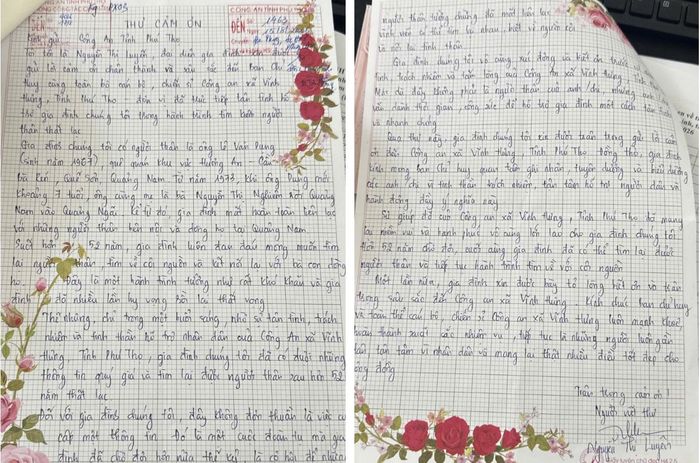 CÔNG AN TỈNH PHÚ THỌ
THƯ CẢM ƠN
ĐẾN
1463
gửi: Công An Tỉnh Phú Thọ
tôi là Nguyễn Thị Luyến, đại diện gia đình
gửi lời cảm ơn chân thành và sâu sắc đến Ban Chỉ
huy cùng toàn bộ cán bộ, chiến sĩ Công an xã Vĩnh
Hưng, Tỉnh Phú Thọ - đơn vị đã trực tiếp tận tình hỗ
trợ gia đình chúng tôi trong hành trình tìm kiếm người
thân thất lạc
Gia đình chúng tôi có người thân là ông Lê Văn Dũng
(sinh năm 1967), quê quán khu vực thường An - Cầu
Bà Rén, Quế Sơn, Quảng Nam. Từ năm 1973, khi ông Dũng mới
khoảng 7 tuổi, ông cùng mẹ là bà Nguyễn Thị Nghiễm rời Quảng
Nam vào Quảng Ngãi. Kể từ đó, gia đình mất hoàn toàn liên lạc
với những người thân bên nội và dòng họ tại Quảng Nam
Suốt hơn 52 năm, gia đình luôn đau đáu mong muốn tìm
lại người thân, tìm về cội nguồn và kết nối lại với bà con dòng
họ. Đây là một hành trình tưởng như rất khó khăn và gia
đình đã nhiều lần hy vọng rồi lại thất vọng
Thế nhưng, chỉ trong một buổi sáng, nhờ sự tận tình, trách
nhiệm và tinh thần hỗ trợ nhân dân quả Công An xã Vĩnh
Hưng, Tỉnh Phú Thọ, gia đình chúng tôi đã có được những
thông tin quý giá và tìm lại được người thân sau hơn 52
năm thất lạc
Đối với gia đình chúng tôi, đây không đơn thuần là việc cung
cấp một thông tin. Đó là một cuộc đoàn tụ mà gia
đình đã chờ đợi hơn nửa thế kỷ, là cơ hội để nhiều
người thân tưởng chừng đã mất liên lạc
vĩnh viễn có thể tìm lại nhau, biết về nguồn cội
và nối lại tình thân
Gia đình chúng tôi vô cùng xúc động và biết ơn trước
tình, trách nhiệm và tấm lòng của Công an xã Vĩnh Hưng, Tỉnh
Mặc dù đây không phải là người thân của anh/chị, nhưng
vẫn dành thời gian, công sức để hỗ trợ gia đình một cách tận tình
và nhanh chóng
Qua thư này, gia đình chúng tôi xin được trân trọng gửi lời cảm
ơn đến Công an xã Vĩnh Hưng, Tỉnh Phú Thọ. Đồng thời, gia đình
kính mong ban Chỉ huy quan tâm ghi nhận, tuyên dương và biểu dương
các anh/chị vì tinh thần trách nhiệm, tận tâm hỗ trợ người dân và
hành động đầy ý nghĩa này
Sự giúp đỡ của Công an xã Vĩnh Hưng, Tỉnh Phú Thọ đã mang
lại niềm vui và hạnh phúc vô cùng lớn lao cho gia đình chúng tôi.
52 năm chờ đợi, cuối cùng gia đình đã có thể tìm lại được
người thân và tiếp tục hành trình tìm về với cội nguồn
Một lần nữa, gia đình xin được bày tỏ lòng biết ơn và trân
trọng sâu sắc đến Công an xã Vĩnh Hưng. Kính chúc Ban chỉ huy
và toàn thể cán bộ, chiến sĩ Công an xã Vĩnh Hưng luôn mạnh khoẻ,
hoàn thành xuất sắc nhiệm vụ, tiếp tục là những người luôn gần
dân tận tâm vì nhân dân và mang lại thật nhiều điều tốt đẹp cho
cộng đồng
Trân trọng cảm ơn!
Người viết thư
Nguyễn Thị Luyến